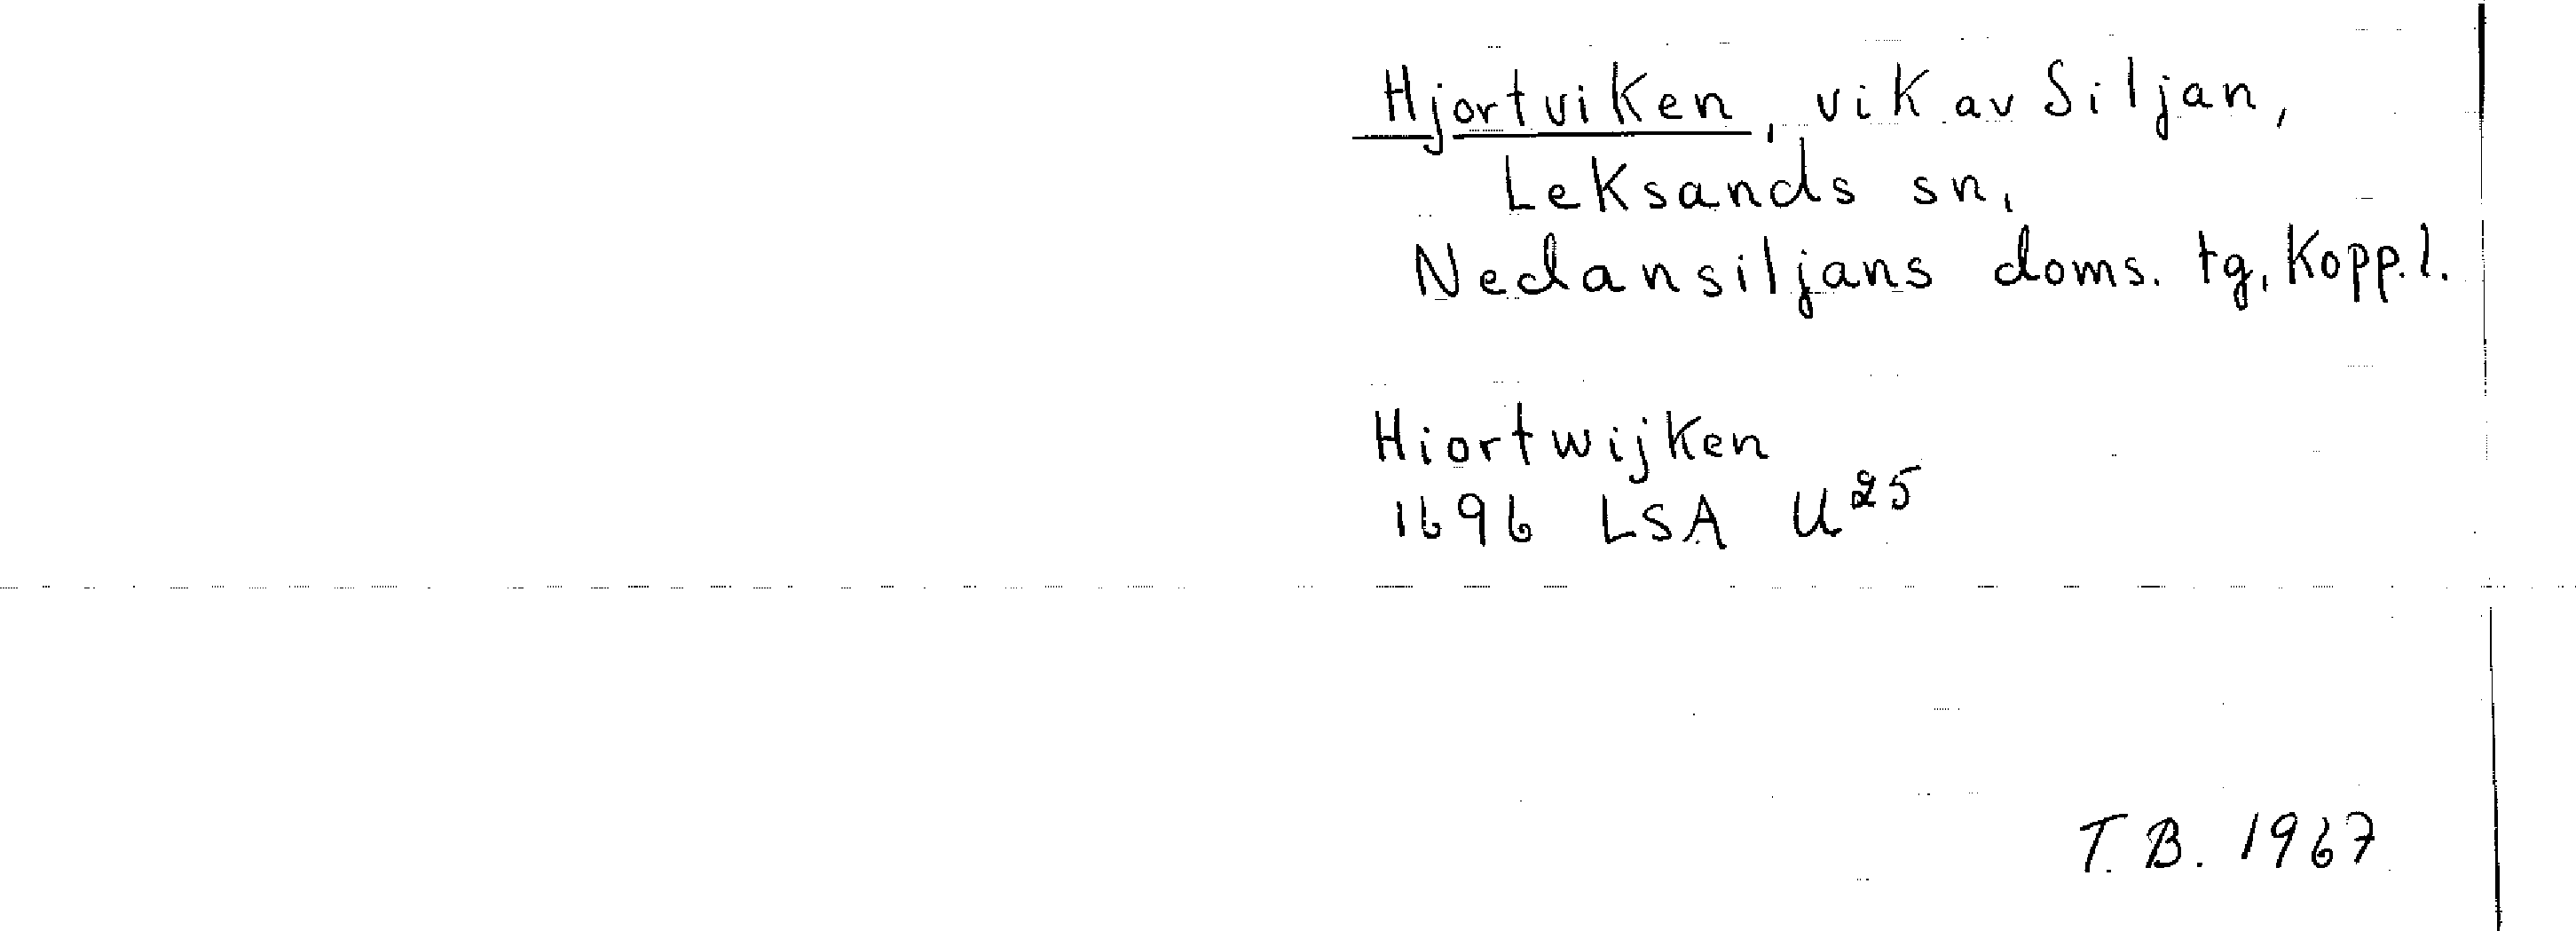 Hjortviken, vik av Siljan,
Leksands sn,
Nedansiljans doms. tg, Kopp.l.
Hiortwijken
1696 LSA U25
T.B. 1967